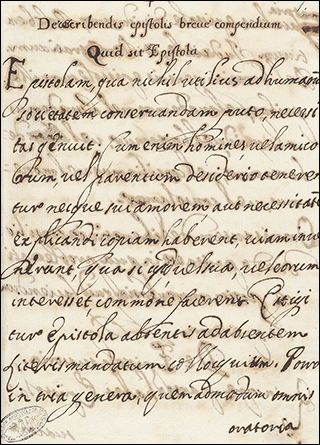 De scribendis epistolis breve compendium
Quid sit Epistola
Epistolam, qua nichil utilius ad humanam
societatem conservandam puto, necessi
tas genuit. Cum enim homines vel amico
rum vel parentum desiderio teneren
tur neque sui amorem aut necessitatē
explicandi copiam haberent, viam inve
nerunt qua
interesset, commone facerent. Est igi
tur Epistola absentis ad absentem
literis mandatum colloquium. Porro
in tria genera, quem admodum omnis
oratoria